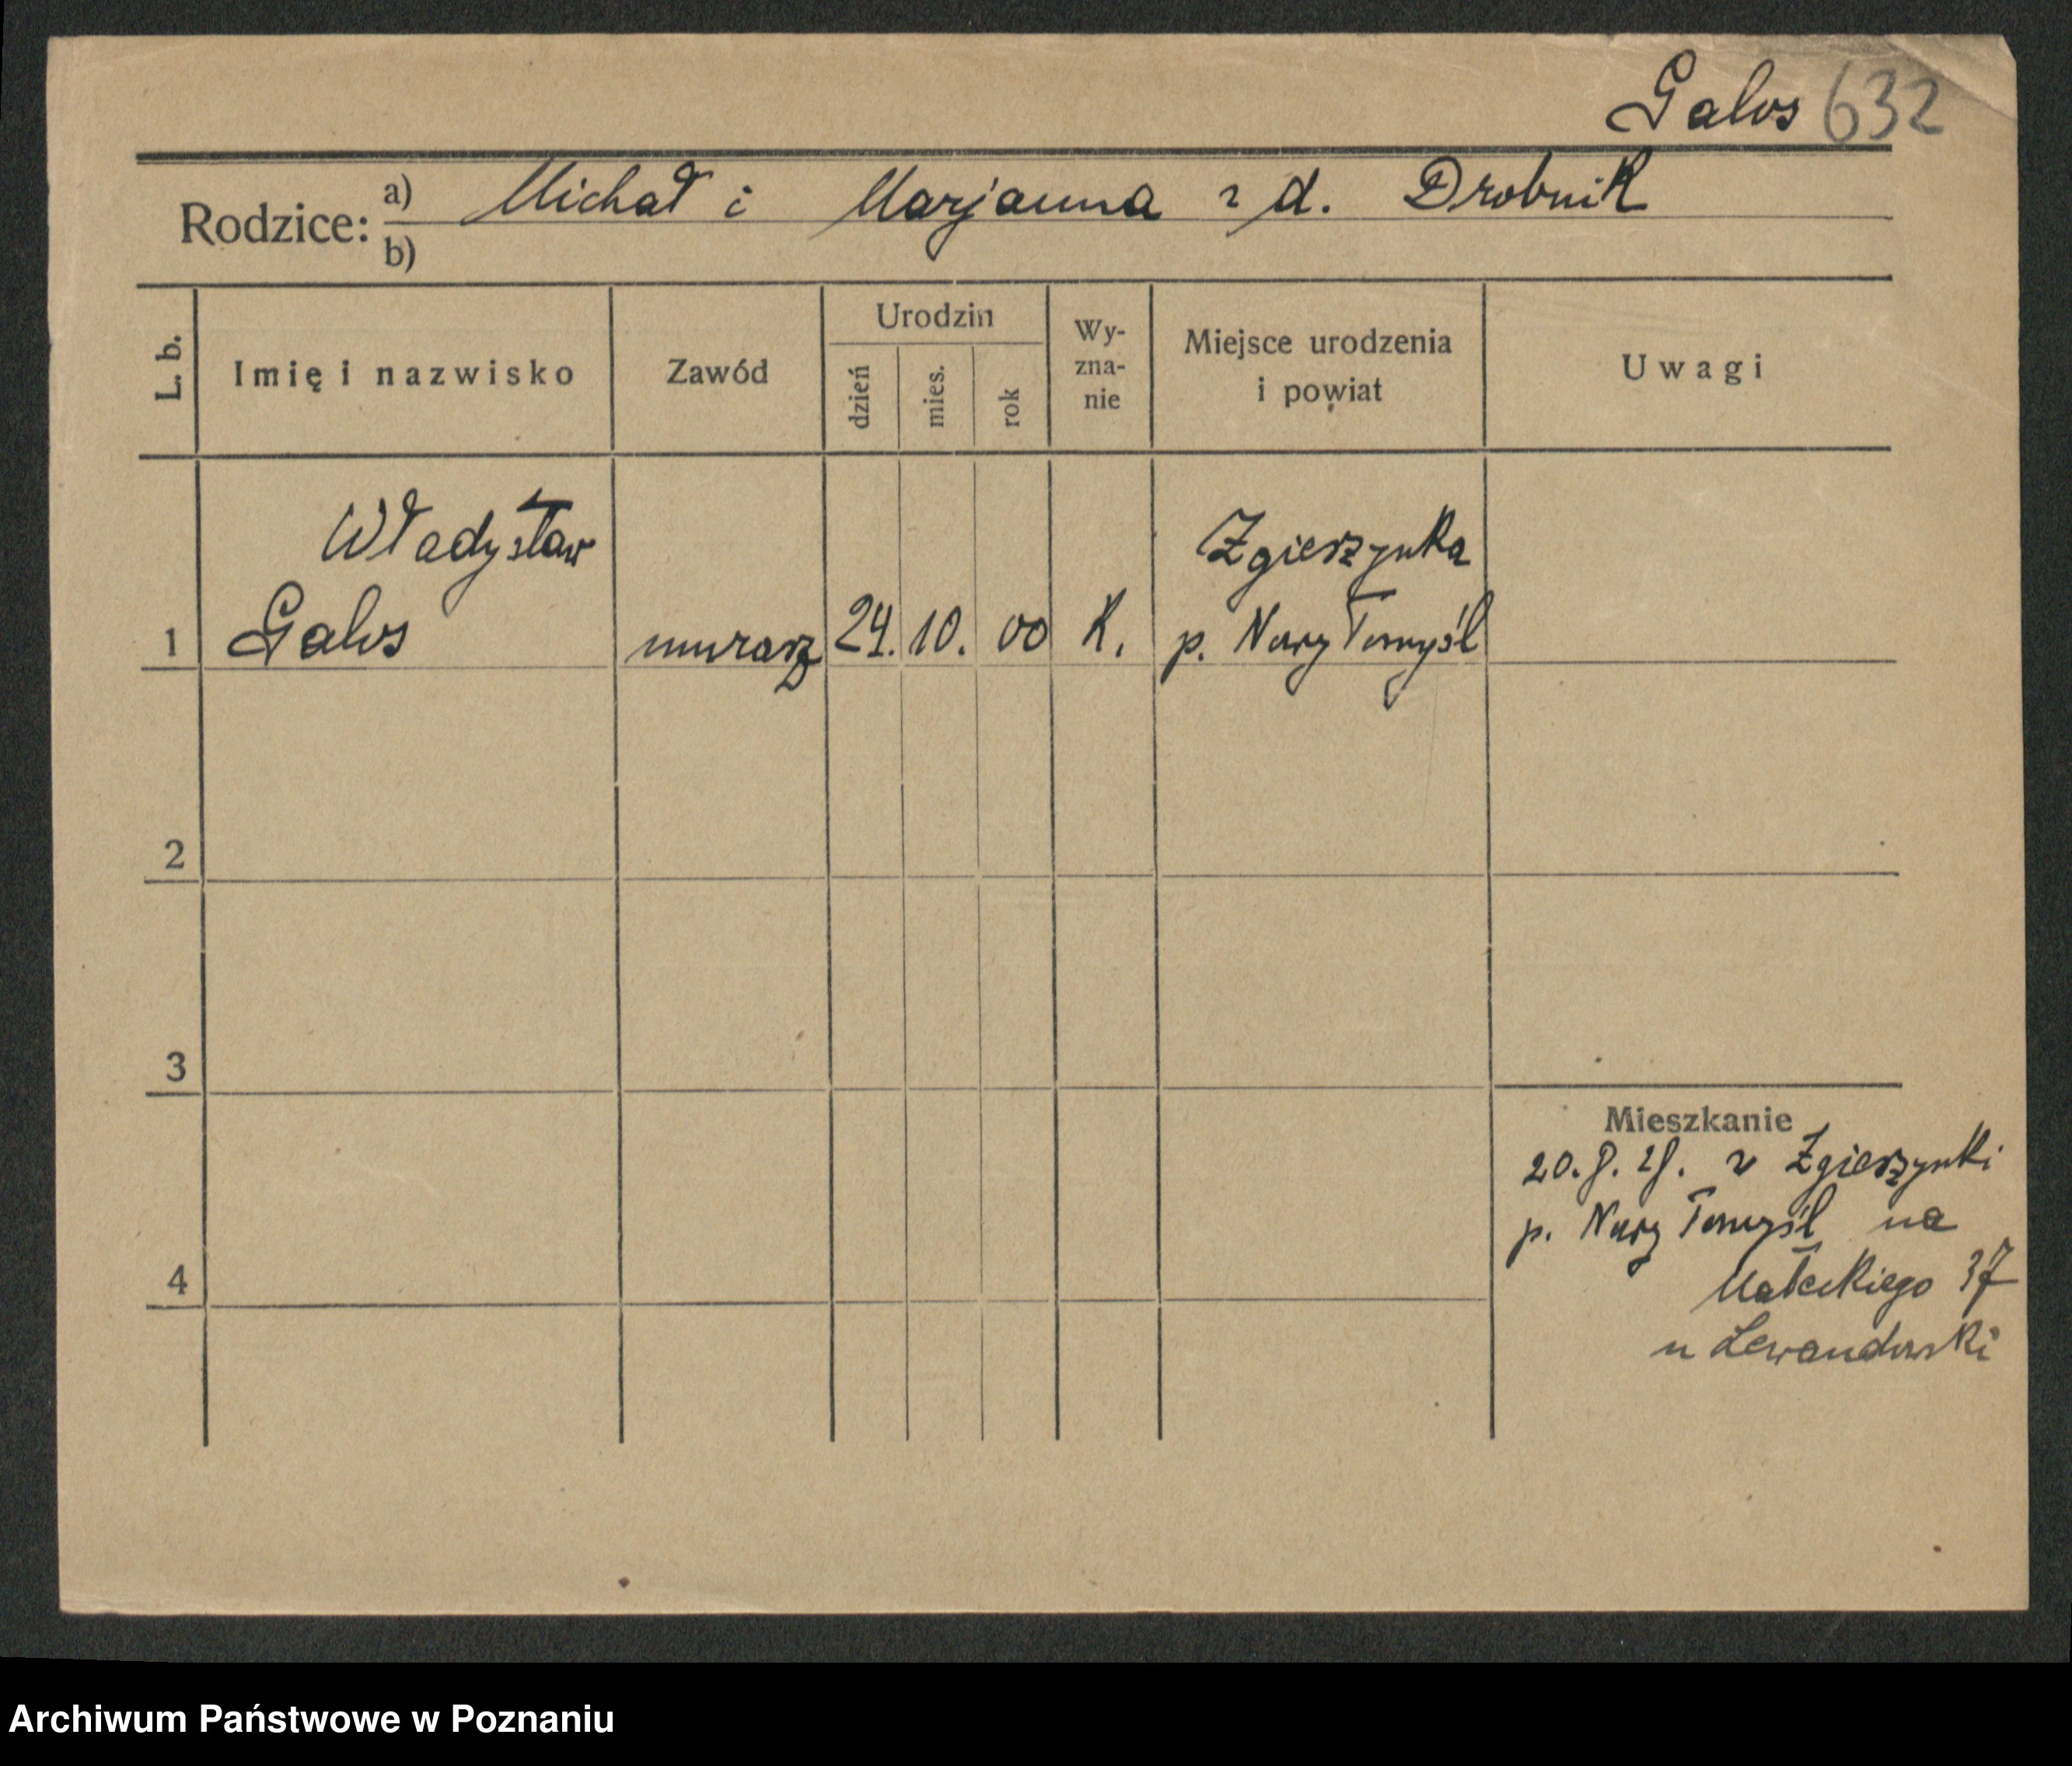 Galos 632
Rodzice: a) Michał i Marjanna z d. Drobnik
b)
L. b.
Imię i nazwisko
Zawód
Urodzin
dzień
mies.
rok
Wy-
zna-
nie
Miejsce urodzenia
i powiat
Uwagi
Władysław
Zgierzynka
1 Galos murarz 24. 10. 00 K. p. Nowy Tomyśl
2
3
Mieszkanie
20. 8. 28. z Zgierzynki
p. Nowy Tomyśl na
4
Małeckiego 37
u Lewandowski
Archiwum Państwowe w Poznaniu